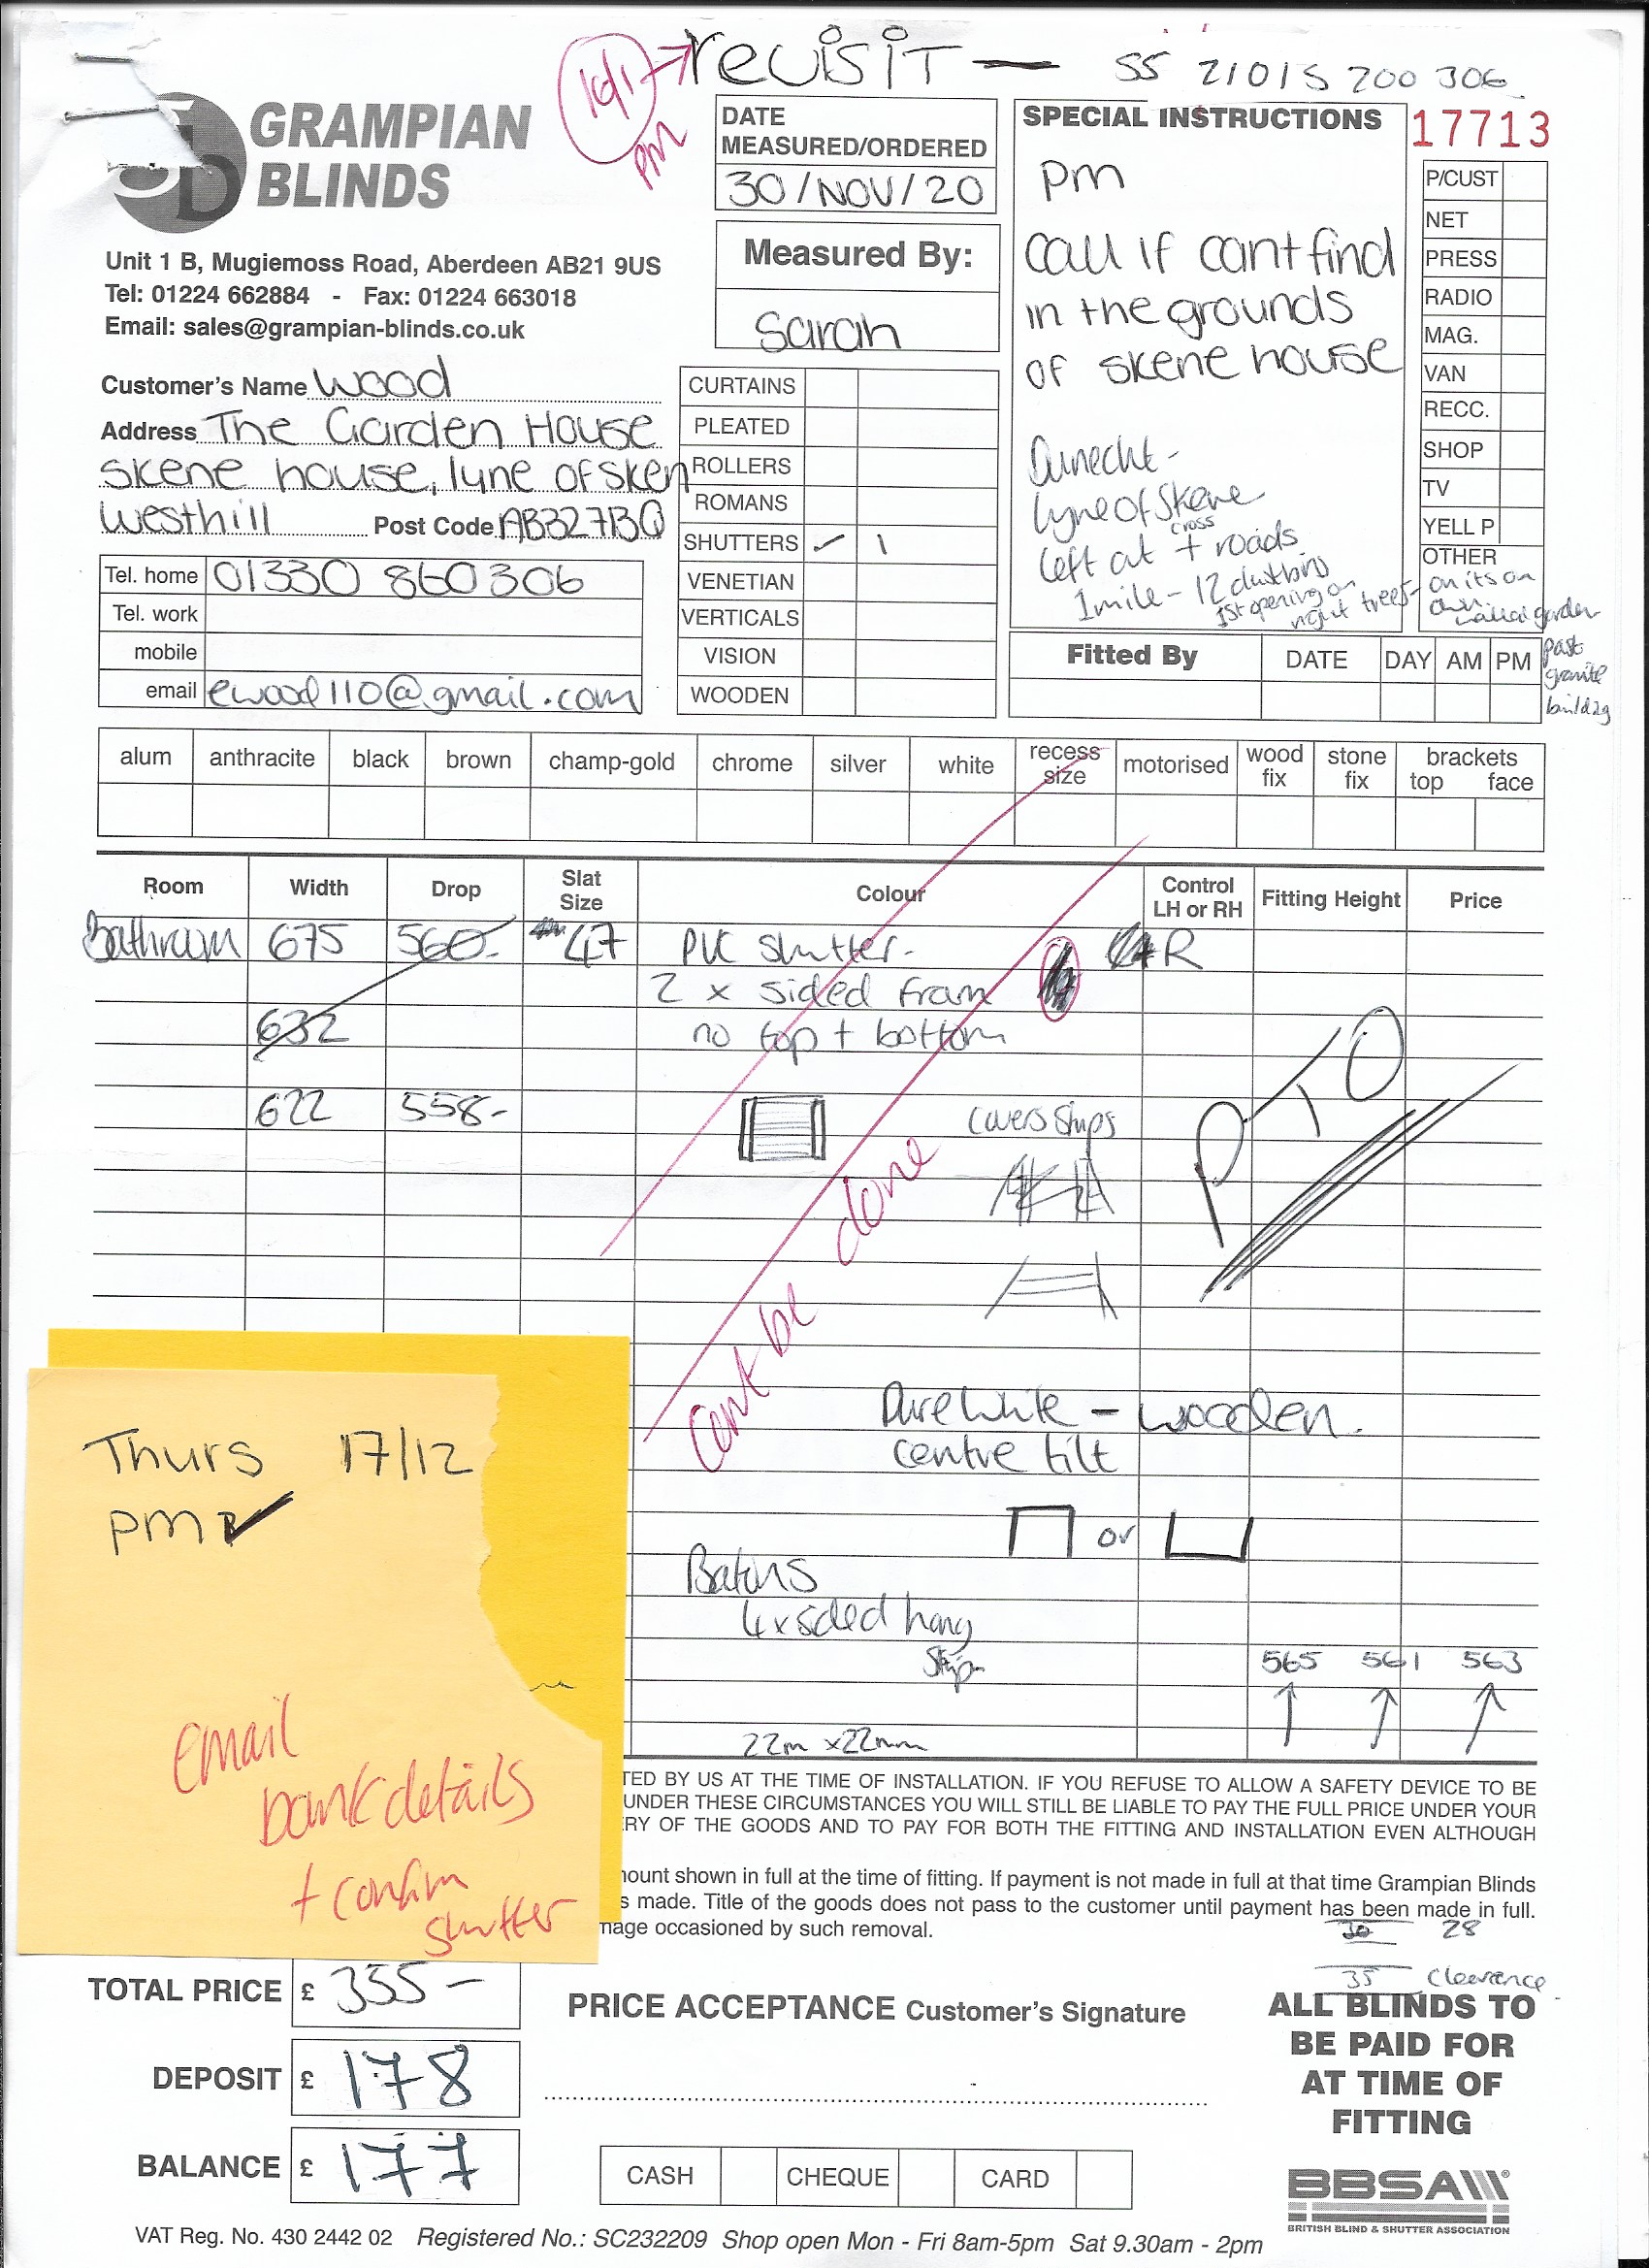 16/1 → revisit — SS 21015 200 306
pm
GRAMPIAN
BLINDS
Unit 1 B, Mugiemoss Road, Aberdeen AB21 9US
Tel: 01224 662884 - Fax: 01224 663018
Email: sales@grampian-blinds.co.uk
DATE
MEASURED/ORDERED
30/NOV/20
Measured By:
Sarah
SPECIAL INSTRUCTIONS
17713
pm
call if cant find
in the grounds
of skene house
Dunecht -
Lyne of Skene
cross
left at + roads
1 mile - 12 dustbins
1st opening on
right trees -
on its on
own
walled garden
past
granite
building
P/CUST
NET
PRESS
RADIO
MAG.
VAN
RECC.
SHOP
TV
YELL P
OTHER
Customer's Name Wood
Address The Garden House
Skene house, lyne of Sken
Westhill Post Code AB32 7BQ
Tel. home 01330 860306
Tel. work
mobile
email ewood110@gmail.com
CURTAINS
PLEATED
ROLLERS
ROMANS
SHUTTERS ✓ 1
VENETIAN
VERTICALS
VISION
WOODEN
Fitted By DATE DAY AM PM
alum anthracite black brown champ-gold chrome silver white recess size motorised wood fix stone fix brackets top face
Room Width Drop Slat Size Colour Control LH or RH Fitting Height Price
Bathroom 675 560- 47 PVC shutter- R
2 x sided fram
632 no top + bottom
622 558-
covers strips
PTO
cant be done
Pure White - wooden.
centre tilt
or
Batons
4 x sided hang
strip
565 561 563
22m x 22mm
Thurs 17/12
pm ✓
email
bank details
+ confirm
shutter
TED BY US AT THE TIME OF INSTALLATION. IF YOU REFUSE TO ALLOW A SAFETY DEVICE TO BE
UNDER THESE CIRCUMSTANCES YOU WILL STILL BE LIABLE TO PAY THE FULL PRICE UNDER YOUR
RY OF THE GOODS AND TO PAY FOR BOTH THE FITTING AND INSTALLATION EVEN ALTHOUGH
ount shown in full at the time of fitting. If payment is not made in full at that time Grampian Blinds
s made. Title of the goods does not pass to the customer until payment has been made in full.
mage occasioned by such removal.
28
35 clearence
TOTAL PRICE £ 355-
DEPOSIT £ 178
BALANCE £ 177
PRICE ACCEPTANCE Customer's Signature
ALL BLINDS TO
BE PAID FOR
AT TIME OF
FITTING
CASH CHEQUE CARD
BBSA
BRITISH BLIND & SHUTTER ASSOCIATION
VAT Reg. No. 430 2442 02 Registered No.: SC232209 Shop open Mon - Fri 8am-5pm Sat 9.30am - 2pm